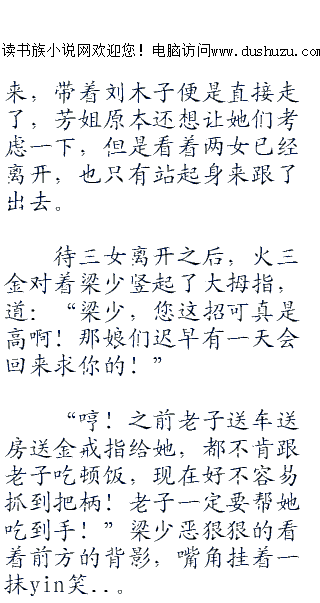 读书族小说网欢迎您！电脑访问www.dushuzu.com
来，带着刘木子便是直接走
了，芳姐原本还想让她们考
虑一下，但是看着两女已经
离开，也只有站起身来跟了
出去。
待三女离开之后，火三
金对着梁少竖起了大拇指，
道：“梁少，您这招可真是
高啊！那娘们迟早有一天会
回来求你的！”
“哼！之前老子送车送
房送金戒指给她，都不肯跟
老子吃顿饭，现在好不容易
抓到把柄！老子一定要帮她
吃到手！”梁少恶狠狠的看
着前方的背影，嘴角挂着一
抹yin笑..。